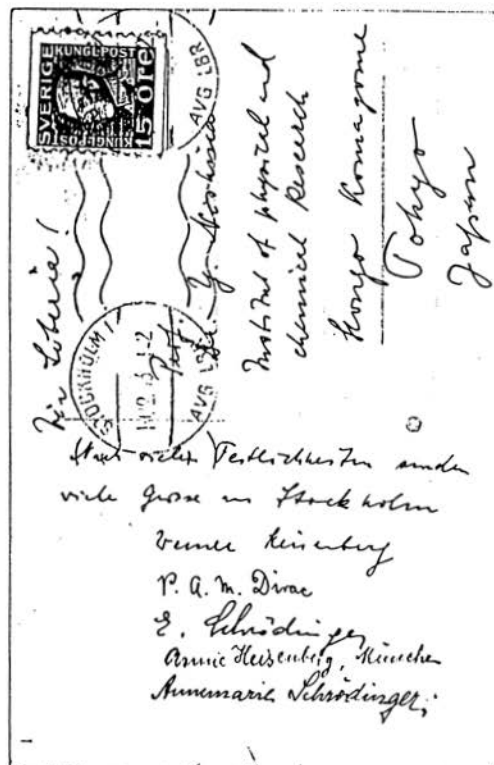 SVERIGE
KUNGLPOST
15 ÖRE
AVG LBR
STOCKHOLM 1
AVG LBR
Prof. Y. Nishina
Institut of physical and
chemical Research
Hongo Komagome
Tokyo
Japan
vielen Festlichkeiten senden
viele Grüsse aus Stockholm
Werner Heisenberg
P. A. M. Dirac
E. Schrödinger
Annie Heisenberg, München
Annemarie Schrödinger